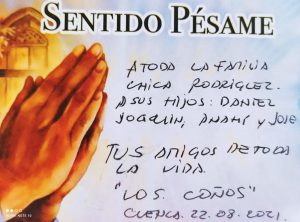 SENTIDO PÉSAME
A TODA LA FAMILIA
CHICA RODRÍGUEZ.
A SUS HIJOS: DANIEL
JOAQUÍN, ANAHÍ y JOSE
TUS AMIGOS DE TODA
LA VIDA.
"LOS COÑOS"
CUENCA 22.08.2021.